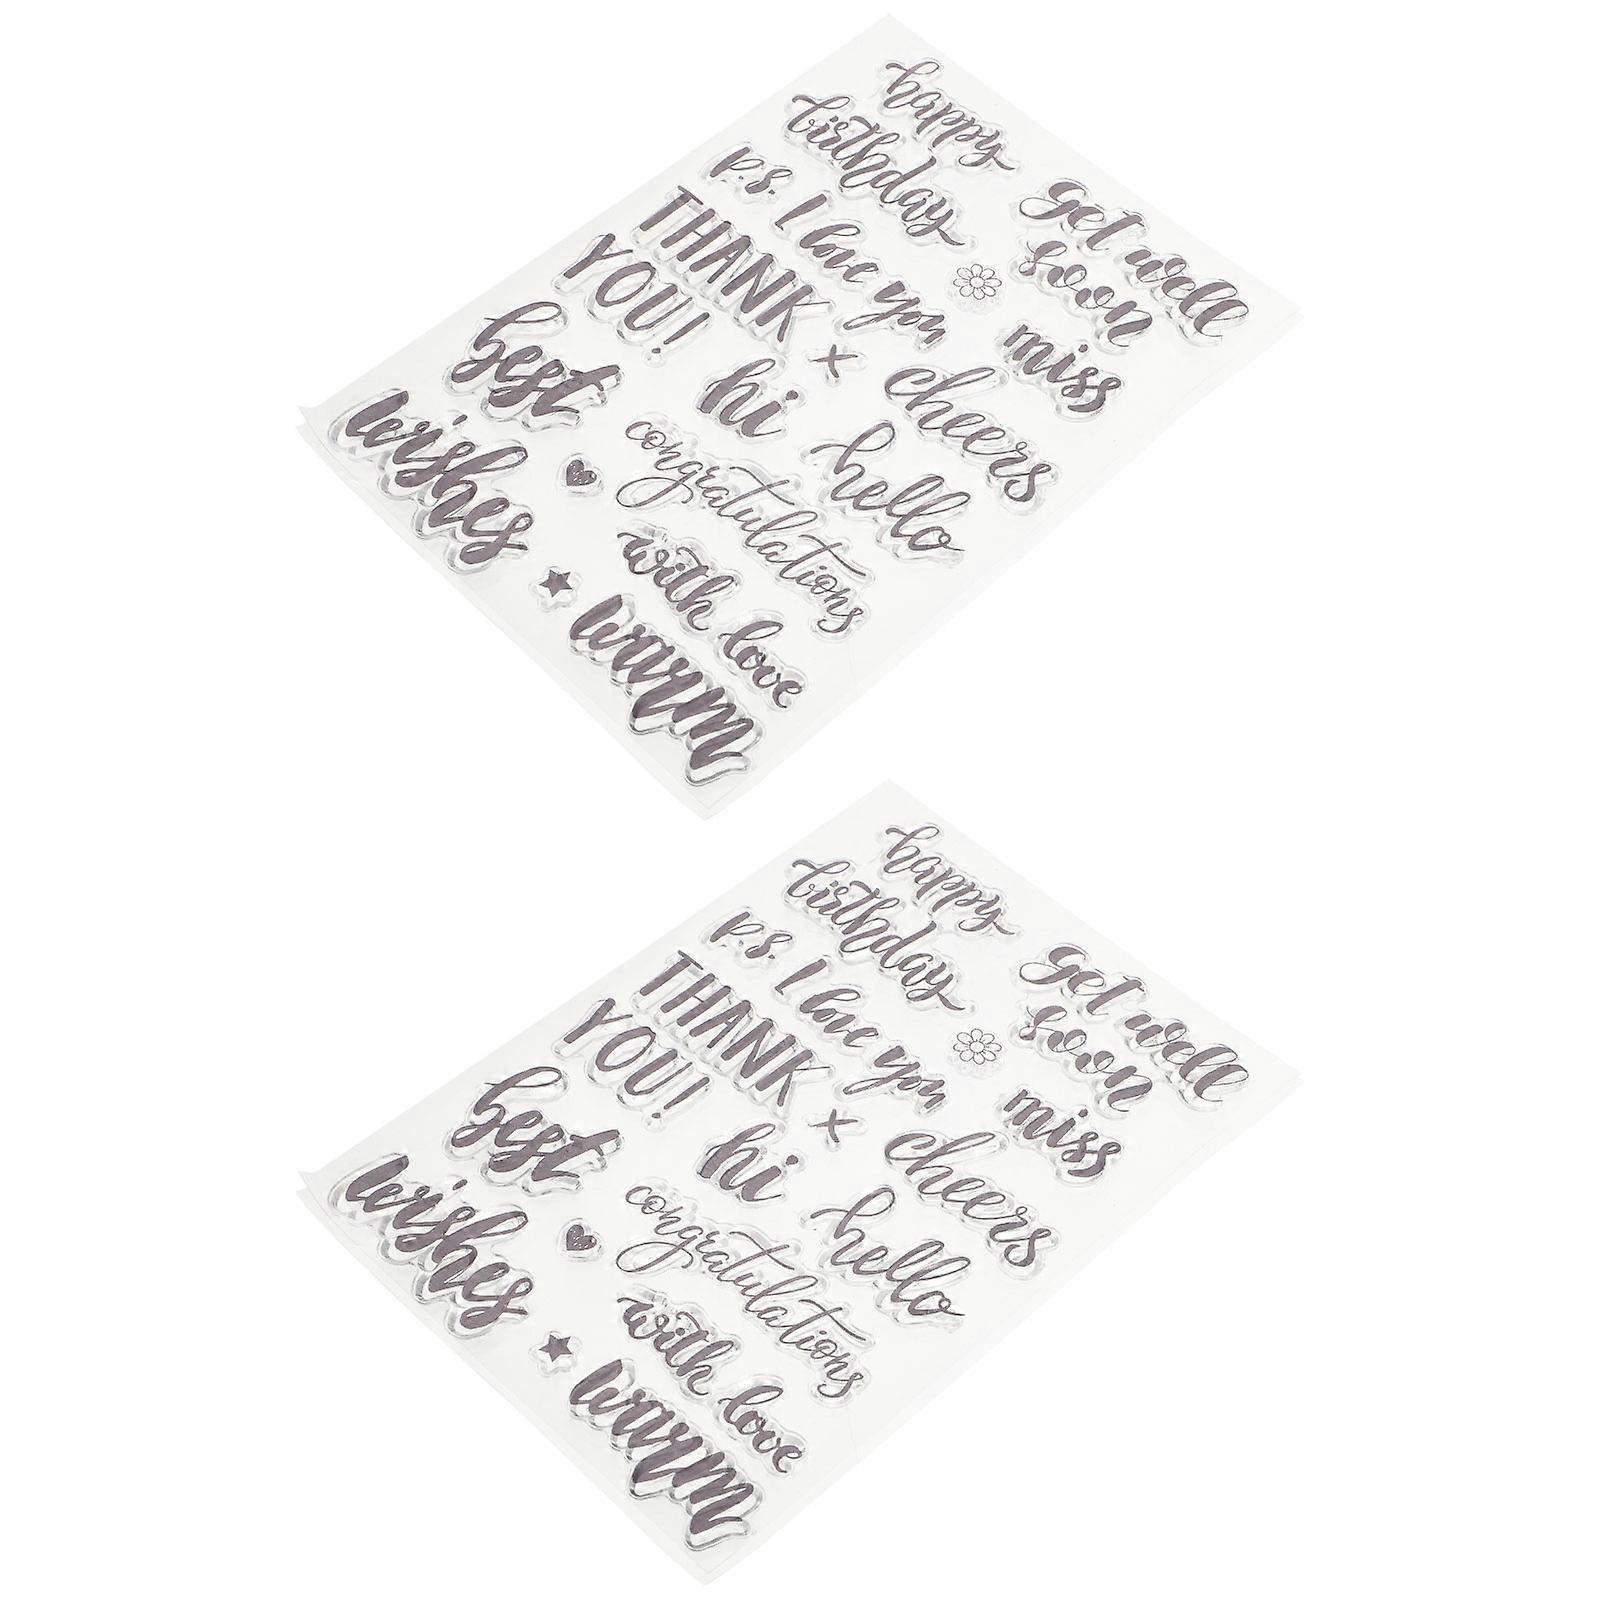 happy
birthday
p.s. I love you
THANK
YOU!
get well
soon
miss
best
wishes
hi
x
cheers
hello
congratulations
with love
warm
happy
birthday
p.s. I love you
THANK
YOU!
get well
soon
miss
best
wishes
hi
x
cheers
hello
congratulations
with love
warm